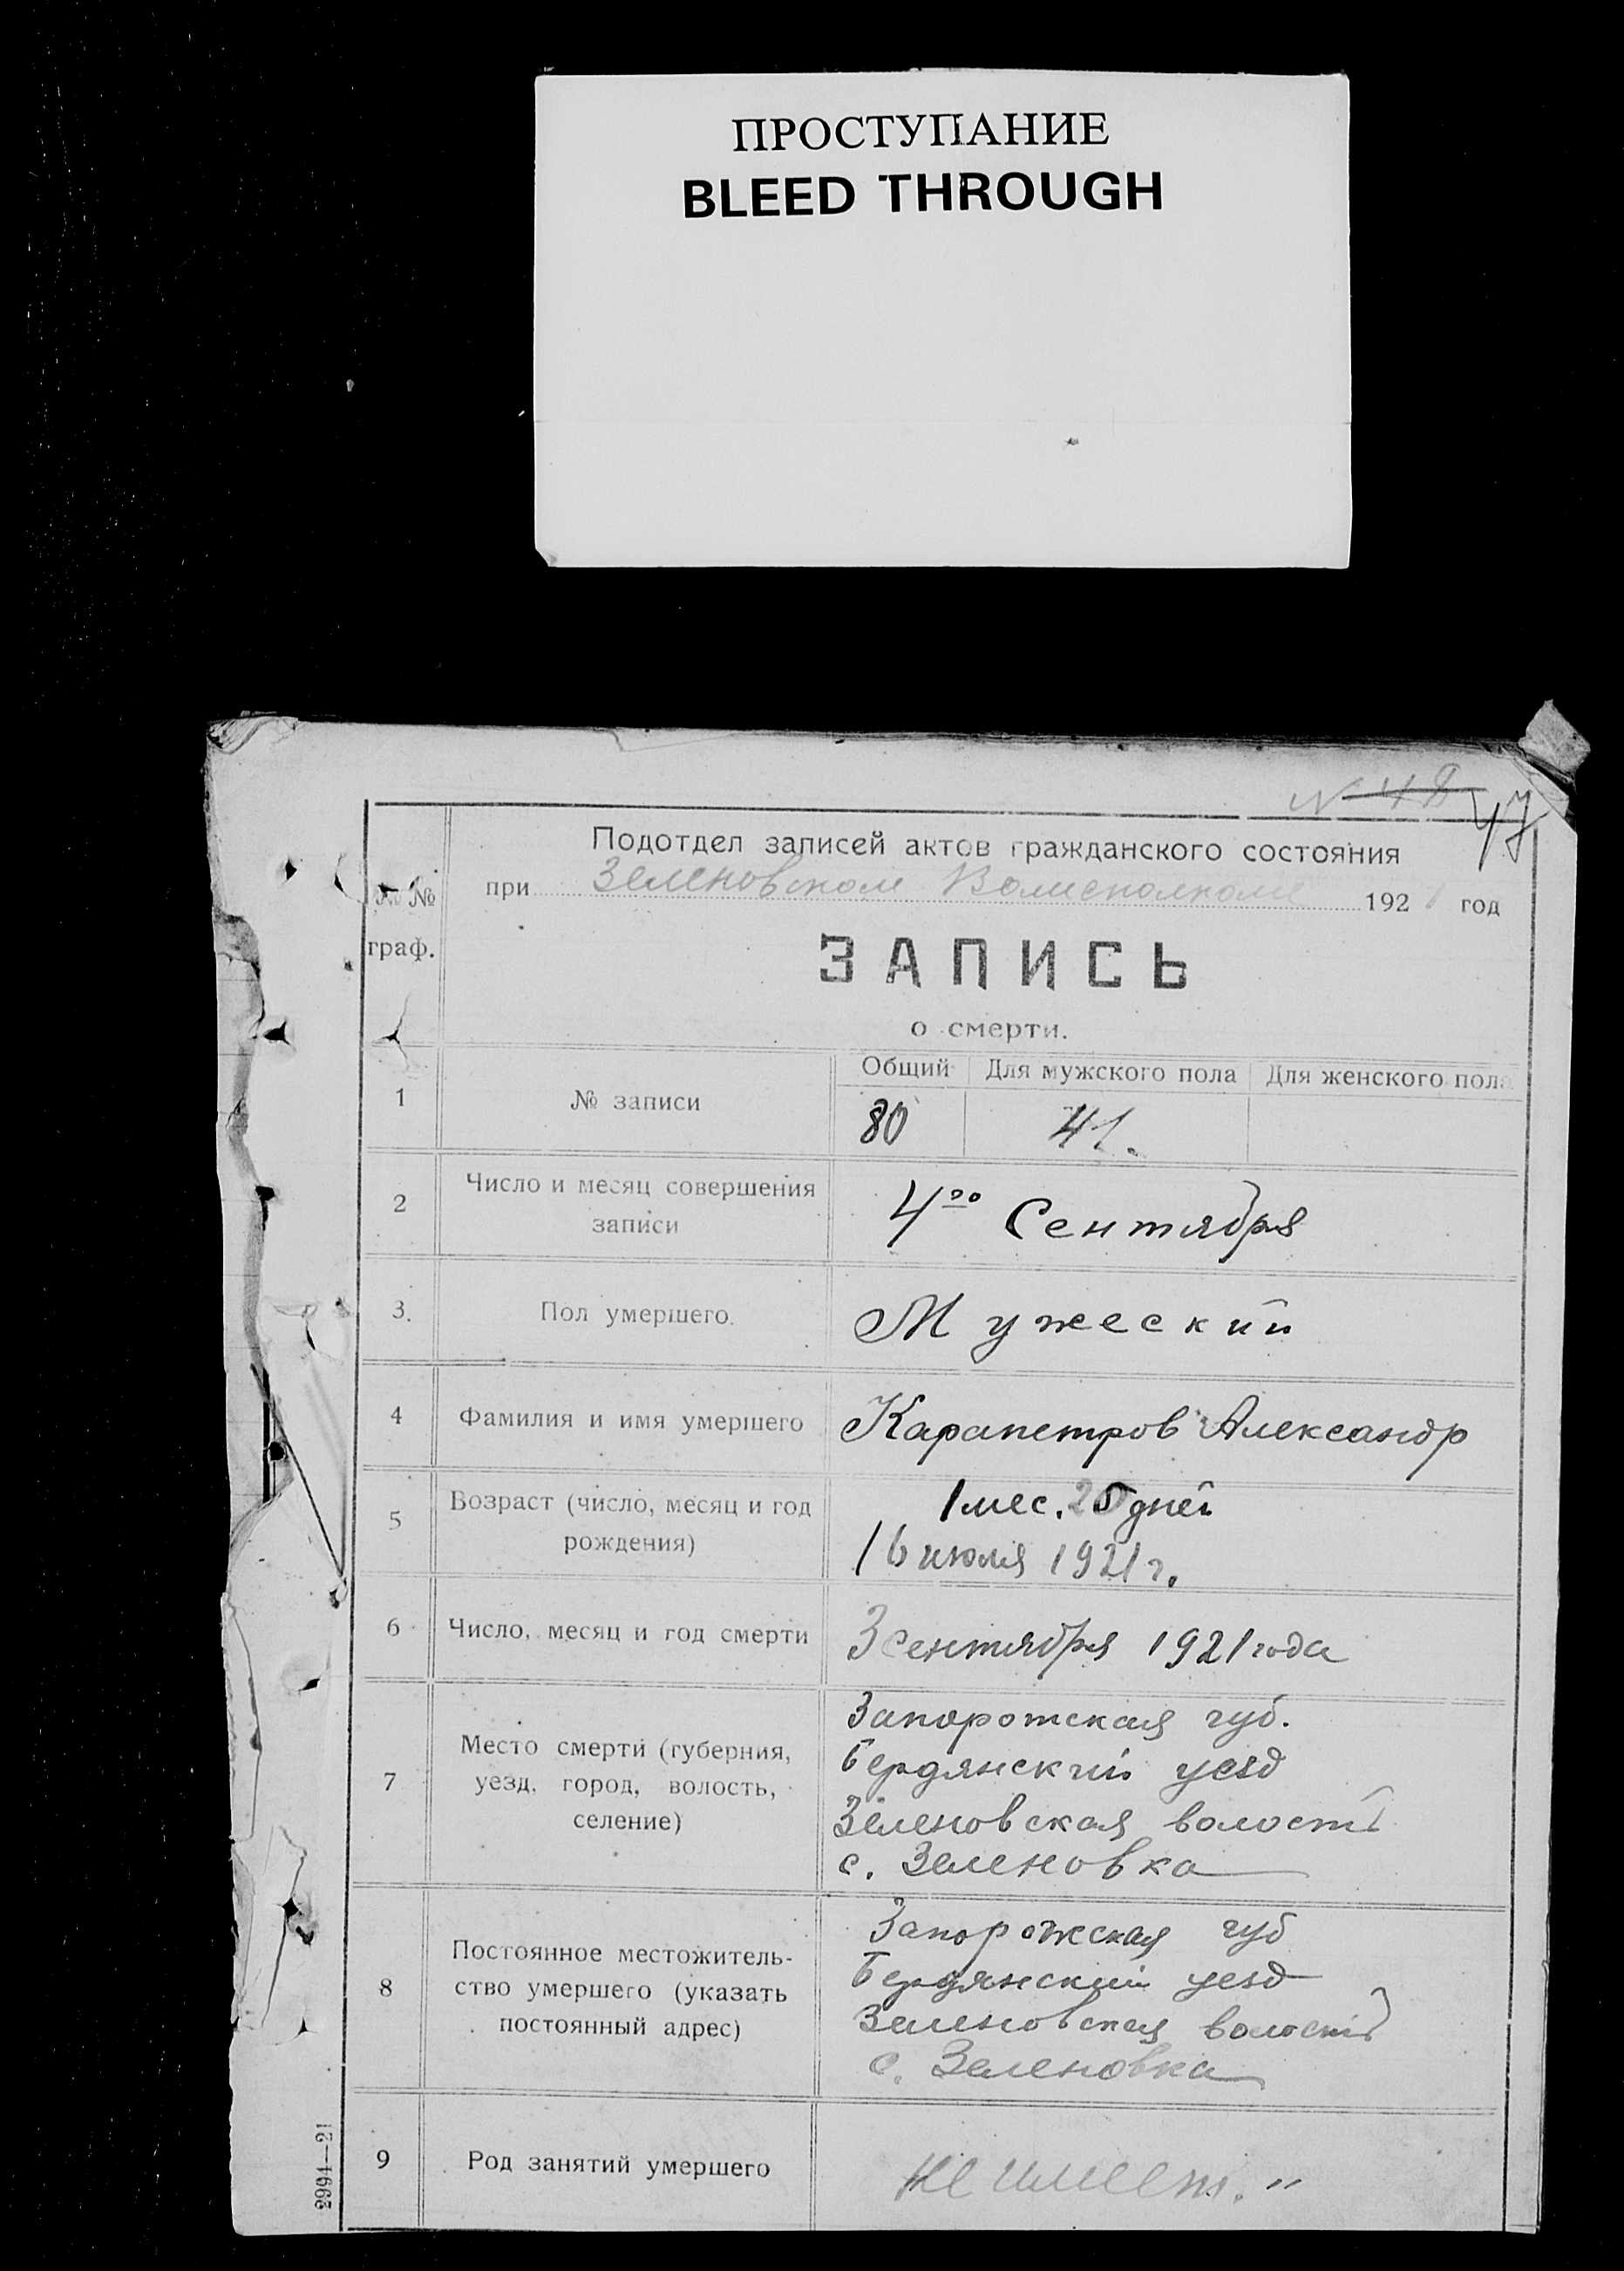 ПРОСТУПАНИЕ
BLEED THROUGH
N 48
47
Подотдел записей актов гражданского состояния
при Зеленовском Волисполкоме 192 год
№ граф.
ЗАПИСЬ
о смерти.
Общий Для мужского пола Для женского пола
1 № записи 80 41.
2 Число и месяц совершения записи 4го Сентября
3. Пол умершего. Мужеский
4 Фамилия и имя умершего Карапетров Александр
5 Возраст (число, месяц и год рождения) 1 мес. 20 дней
16 июля 1921 г.
6 Число, месяц и год смерти 3 сентября 1921 года
7 Место смерти (губерния, уезд, город, волость, селение)
Запоротская губ.
Бердянский уезд
Зеленовская волость
с. Зеленовка
8 Постоянное местожитель-
ство умершего (указать
постоянный адрес)
Запорожская губ
Бердянский уезд
Зеленовская волость
с. Зеленовка
9 Род занятий умершего не имеет. "
2994—21